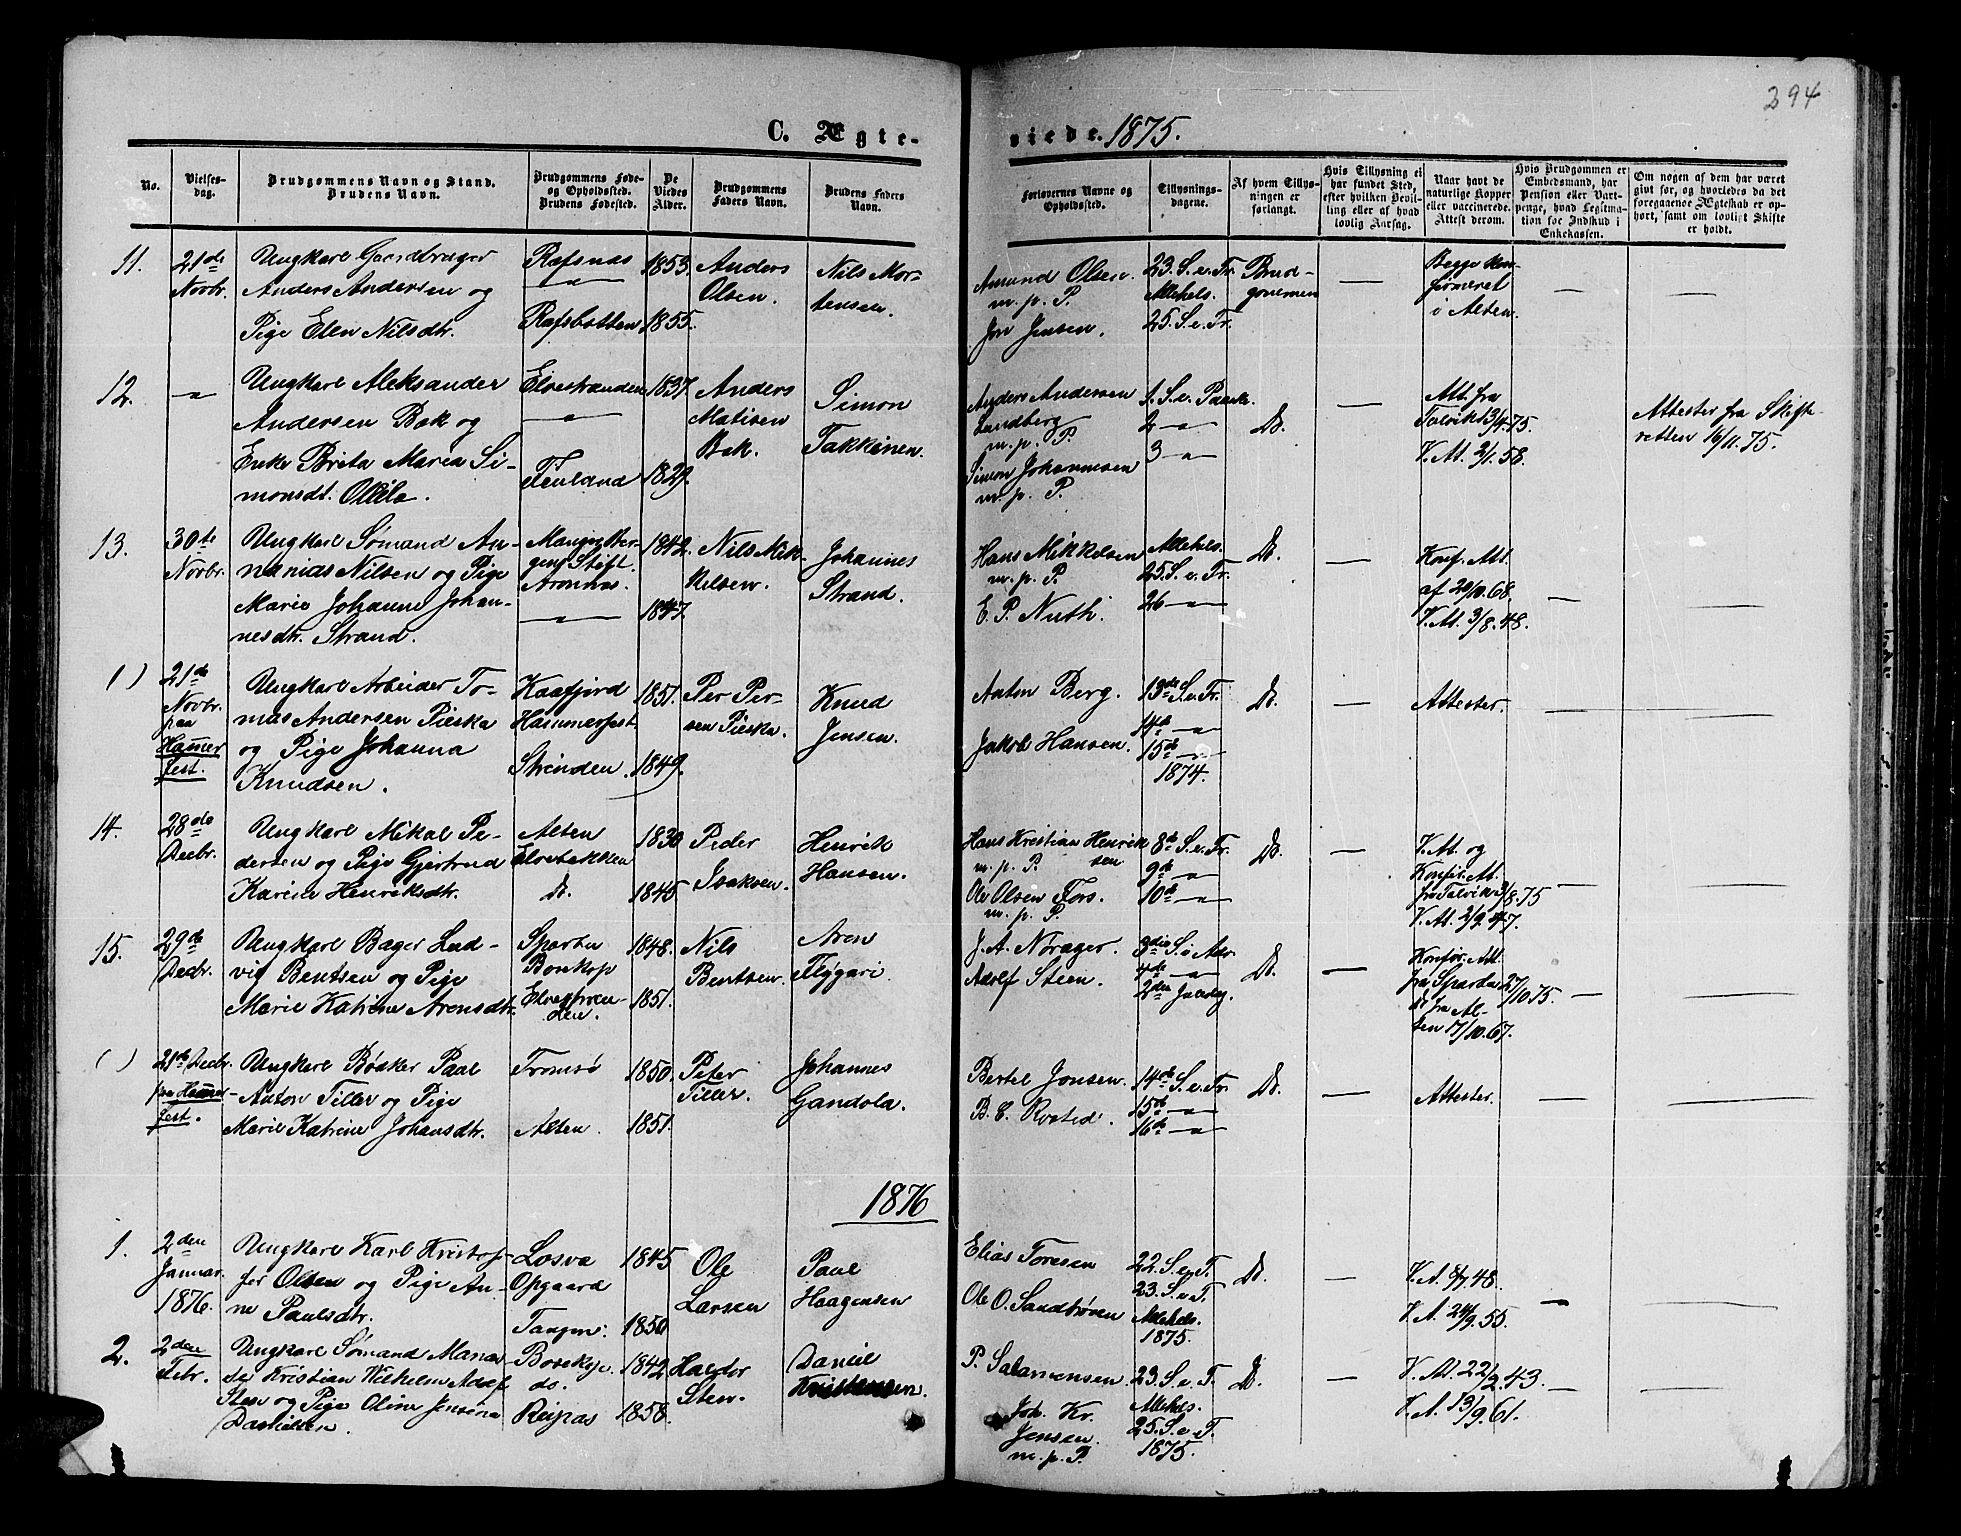 394
C. Ægte- viede. 1875.
No.
Vielses-
dag.
Brudgommens Navn og Stand.
Brudens Navn.
Brudgommens Føde-
og Opholdssted.
Brudens Fødested.
De
Viedes
Alder.
Brudgommens
Faders Navn.
Brudens Faders
Navn.
Forlovernes Navne og
Opholdssted.
Tillysnings-
dagene.
Af hvem Tillys-
ningen er
forlangt.
Hvis Tillysning ei
har fundet Sted,
efter hvilken Bevil-
ling eller af hvad
lovlig Aarsag.
Naar havt de
naturlige Kopper
eller vaccinerede.
Attest derom.
Hvis Brudgommen er
Embedsmand, har
Pension eller Vart-
penge, hvad Legitima-
tion for Indskud i
Enkekassen.
Om nogen af dem har været
givt før, og hvorledes da det
foregaaende Ægteskab er op-
hørt, samt om lovligt Skifte
er holdt.
11.
21de
Novbr.
Ungkarl Gaardbruger
Anders Andersen og
Pige Elen Nilsdtr.
Rafsnæs
— " —
Rafsbotten
1853.
1855.
Anders
Olsen.
Nils Mor-
tensen.
Amund Olsen.
m. p. P.
Jon Jensen.
23. S. e. Tr.
Allehels.
25. S. e. Tr.
Brud-
gommen
—
Begge kon-
firmeret
i Alten.
—
—
12.
— " —
Ungkarl Aleksander
Andersen Bak og
Enke Brita Maria Si-
monsdt. Ollila.
Elvestranden
— " —
Finland
1837.
1829.
Anders
Matisen
Bak.
Simon
Takkinen.
Anders Andersen
Sundberg
m. p. P.
Simon Johannesen
m. p. P.
1. S. e. Paaske.
2 — " —
3 — " —
Do.
—
Att. fra
Talvik 13/4.75.
V. At. 2/1.58.
Attester fra Skifte-
retten 16/11.75.
13.
30te
Novbr.
Ungkarl Sømand An-
nanias Nilsen og Pige
Marie Johanne Johan-
nesdtr. Strand.
Mangr. Ber-
gens Stift.
Aronnæs.
— " —
1842.
1847.
Nils Mik-
kelsen.
Johannes
Strand.
Hans Mikkelsen
m. p. P.
E. P. Nuth.
Allehels.
25. S. e. Tr.
26 — " —
Do.
—
Konf. Att.
af 20/10.68.
V. At. 3/8.48.
—
—
( )
21de
Novbr.
paa
Hammer
fest.
Ungkarl Arbeider To-
mas Andersen Pieska
og Pige Johanna
Knudsen.
Kaafjord
Hammerfest
Strinden.
1851.
1849.
Per Per-
sen Pieska.
Knud
Jensen.
Anton Berg.
Jakob Hansen.
13de S. e. Tr.
14de — " —
15de — " —
1874.
Do.
—
Attester.
—
—
14.
28de
Decbr.
Ungkarl Mikal Pe-
dersen og Pige Gjertrud
Karine Henriksdtr.
Alten
Elvebakken
do.
1830
1845.
Peder
Isaksen.
Henrik
Hansen.
Hans Kristian Henrik
sen
m. p. P.
Ole Olsen Fors.
m. p. P.
8de S. e. Tr.
9de — " —
10de — " —
Do.
—
V. At. og
Konfir. At.
fra Talvik 3/8.75
V. At. 2/9.47.
—
—
15.
29de
Decbr.
Ungkarl Bager Lud-
vig Bentsen og Pige
Marie Katrine Arensdtr.
Sparbu
Bosekop
Elvestran-
den.
1848.
1851.
Nils
Bentsen.
Aren
Flygari.
J. A. Norager.
Adolf Steen.
3die S. i Adv.
4de — " —
2den Juledag.
Do.
—
Konfir. Att.
fra Sparbu 27/10.75.
do. fra Al-
ten 17/10.67.
—
—
( )
21de Decbr.
paa Hammer-
fest.
Ungkarl Bøsker Paal
Anton Tiller og Pige
Marie Katrine Johansdtr.
Tromsø
Alten.
1850.
1851.
Peter
Tiller.
Johannes
Gandola.
Bertel Jonsen.
B. E. Rosted.
14de S. e. Tr.
15de — " —
16de — " —
Do.
—
Attester.
—
—
1876
1.
2den
Januar.
1876.
Ungkarl Karl Kristop-
fer Olsen og Pige An-
ne Paulsdtr.
Losva
Opgaard
Tangen.
1845
1850
Ole
Larsen
Paul
Haagensen
Elias Toresen
Ole O. Sandbøven
22. S. e. T.
23. S. e. T.
Allehels.
1875.
Do.
—
V. A. 8/7.48.
V. A. 24/9.55.
—
—
2.
2den
Febr.
Ungkarl Sømand Manas-
de Kristian Wilhelm Adolf
Sten og Pige Oline Jensine
Danielsen.
Bosekop.
do.
Reipas
1842
1858.
Haldor
Sten.
Daniel
Kristensen.
P. Salamonsen.
Joh. Kr.
Jensen.
m. p. P.
23. S. e. T.
Allehels.
25. S. e. T.
1875.
Do.
—
V. At. 22/2.43.
V. A. 13/9.61.
—
—